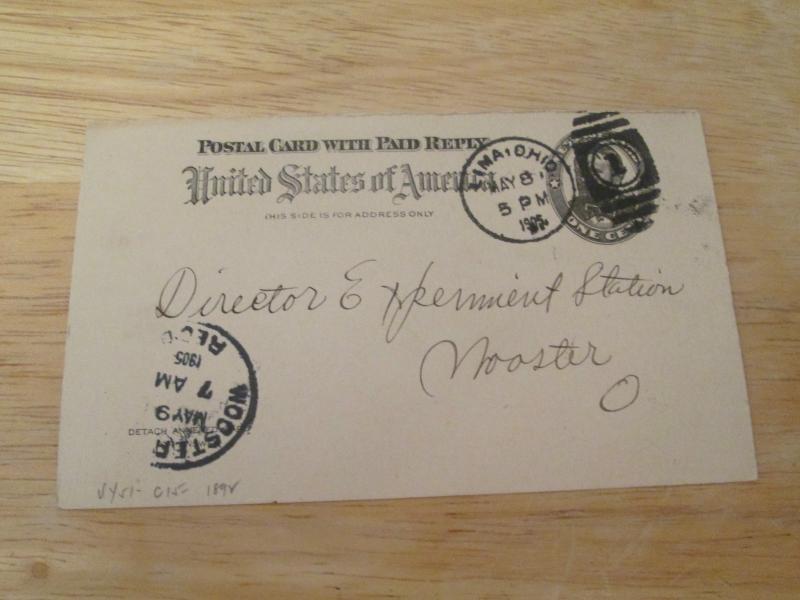 POSTAL CARD WITH PAID REPLY
United States of America
THIS SIDE IS FOR ADDRESS ONLY
LIMA, OHIO
MAY 8
5 PM
1905
1
ONE CENT
Director Experiment Station
Wooster
O
WOOSTER
MAY 9
7 AM
1905
REC'D
DETACH
1892